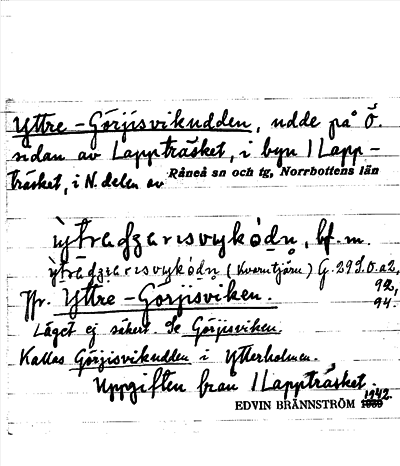 Yttre-Görjisvikudden, udde på Ö.
sidan av Lappträsket, i byn 1 Lapp-
träsket, i N. delen av Råneå sn och tg, Norrbottens län
bf. m.
(Kvarntjärn) G. 29 S.O. a2,
92,
94.
Jfr. Yttre-Görjisviken.
Läget ej säkert. Se Görjisviken.
Kallas Görjisvikudden i Ytterholmen.
Uppgiften från 1 Lappträsket.
EDVIN BRÄNNSTRÖM 1942.